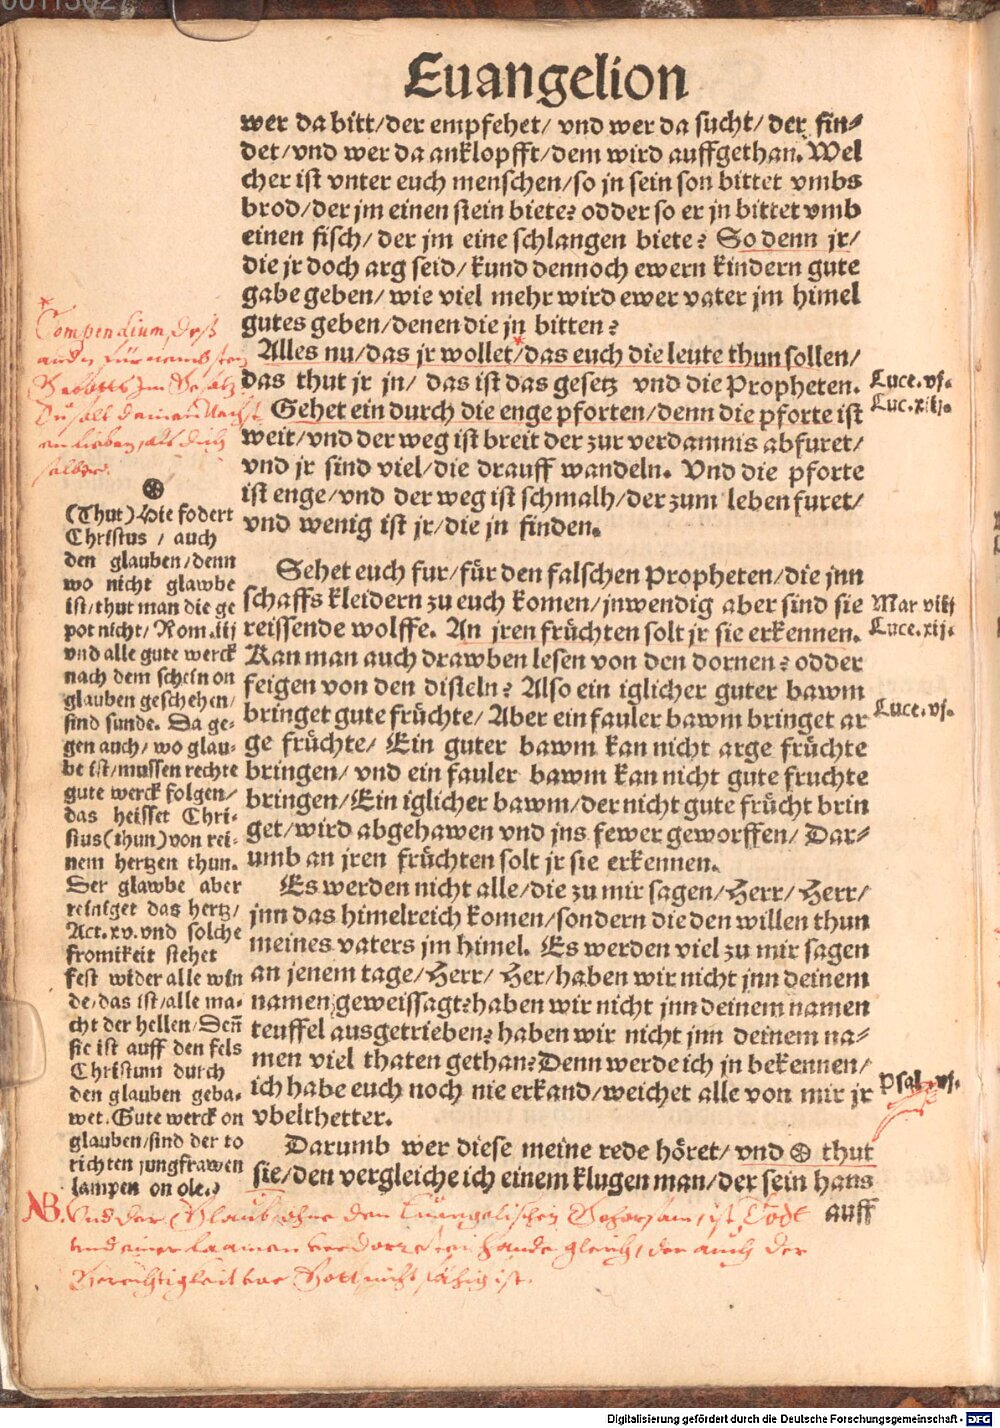 Euangelion
wer da bitt/der empfehet/ vnd wer da sucht/ der fin⸗
det/vnd wer da anklopfft/dem wird auffgethan. Wel
cher ist vnter euch menschen/so jn sein son bittet vmbs
brod/der jm einen stein biete? odder so er jn bittet vmb
einen fisch/ der jm eine schlangen biete? So denn jr/
die jr doch arg seid/ kund dennoch ewern kindern gute
gabe geben/ wie viel mehr wird ewer vater jm himel
gutes geben/denen die jn bitten?
Alles nu/das jr wollet/das euch die leute thun sollen/
das thut jr jn/ das ist das gesetz vnd die Propheten.
Gehet ein durch die enge pforten/denn die pforte ist
weit/vnd der weg ist breit der zur verdamnis abfuret/
vnd jr sind viel/die drauff wandeln. Vnd die pforte
ist enge/vnd der weg ist schmalh/der zum leben furet/
vnd wenig ist jr/die jn finden.
Sehet euch fur/für den falschen Propheten/die jnn
schaffs kleidern zu euch komen/jnwendig aber sind sie
reissende wolffe. An jren früchten solt jr sie erkennen.
Kan man auch drawben lesen von den dornen? odder
feigen von den disteln? Also ein iglicher guter bawm
bringet gute früchte/ Aber ein fauler bawm bringet ar
ge früchte/ Ein guter bawm kan nicht arge früchte
bringen/ vnd ein fauler bawm kan nicht gute fruchte
bringen/Ein iglicher bawm/der nicht gute frücht brin
get/wird abgehawen vnd jns fewer geworffen/ Dar⸗
umb an jren früchten solt jr sie erkennen.
Es werden nicht alle/die zu mir sagen/Herr/ Herr/
jnn das himelreich komen/sondern die den willen thun
meines vaters jm himel. Es werden viel zu mir sagen
an jenem tage/Herr/ Her/haben wir nicht jnn deinem
namen geweissagt?haben wir nicht jnn deinem namen
teuffel ausgetrieben? haben wir nicht jnn deinem na⸗
men viel thaten gethan?Denn werde ich jn bekennen/
ich habe euch noch nie erkand/weichet alle von mir jr
vbelthetter.
Darumb wer diese meine rede höret/ vnd ⊛ thut
sie/den vergleiche ich einem klugen man/der sein haus
auff
Luce.vj.
Luc.xiij.
Mar viij
Luce.xij.
Luce.vj.
Psal. vj.
*
Compendium, deß
andern fürnembsten
Gebotts im Gesätz
Du solt deinen Nächst
en lieben, als dich
selber.
⊛
(Thut) Hie fodert
Christus / auch
den glauben/denn
wo nicht glawbe
ist/thut man die ge
pot nicht/ Rom.iij
vnd alle gute werck
nach dem schein on
glauben geschehen/
sind sunde. Da ge⸗
gen auch/ wo glau⸗
be ist/mussen rechte
gute werck folgen/
das heisset Chri⸗
stus(thun)von rei⸗
nem hertzen thun.
Der glawbe aber
reiniget das hertz/
Act.xv.vnd solche
fromikeit stehet
fest wider alle win
de/das ist/alle ma⸗
cht der hellen/Deñ
sie ist auff den fels
Christum durch
den glauben geba⸗
wet.Gute werck on
glauben/sind der to
richten jungfrawen
lampen on ole.)
NB. Und der Glaub, ohne den Euangelischen Gehorsam, ist Todt
und einer lahmen verdorreten hande gleich, der auch der
Gerechtigkeit vor Gott nicht fähig ist.
Digitalisierung gefördert durch die Deutsche Forschungsgemeinschaft - DFG